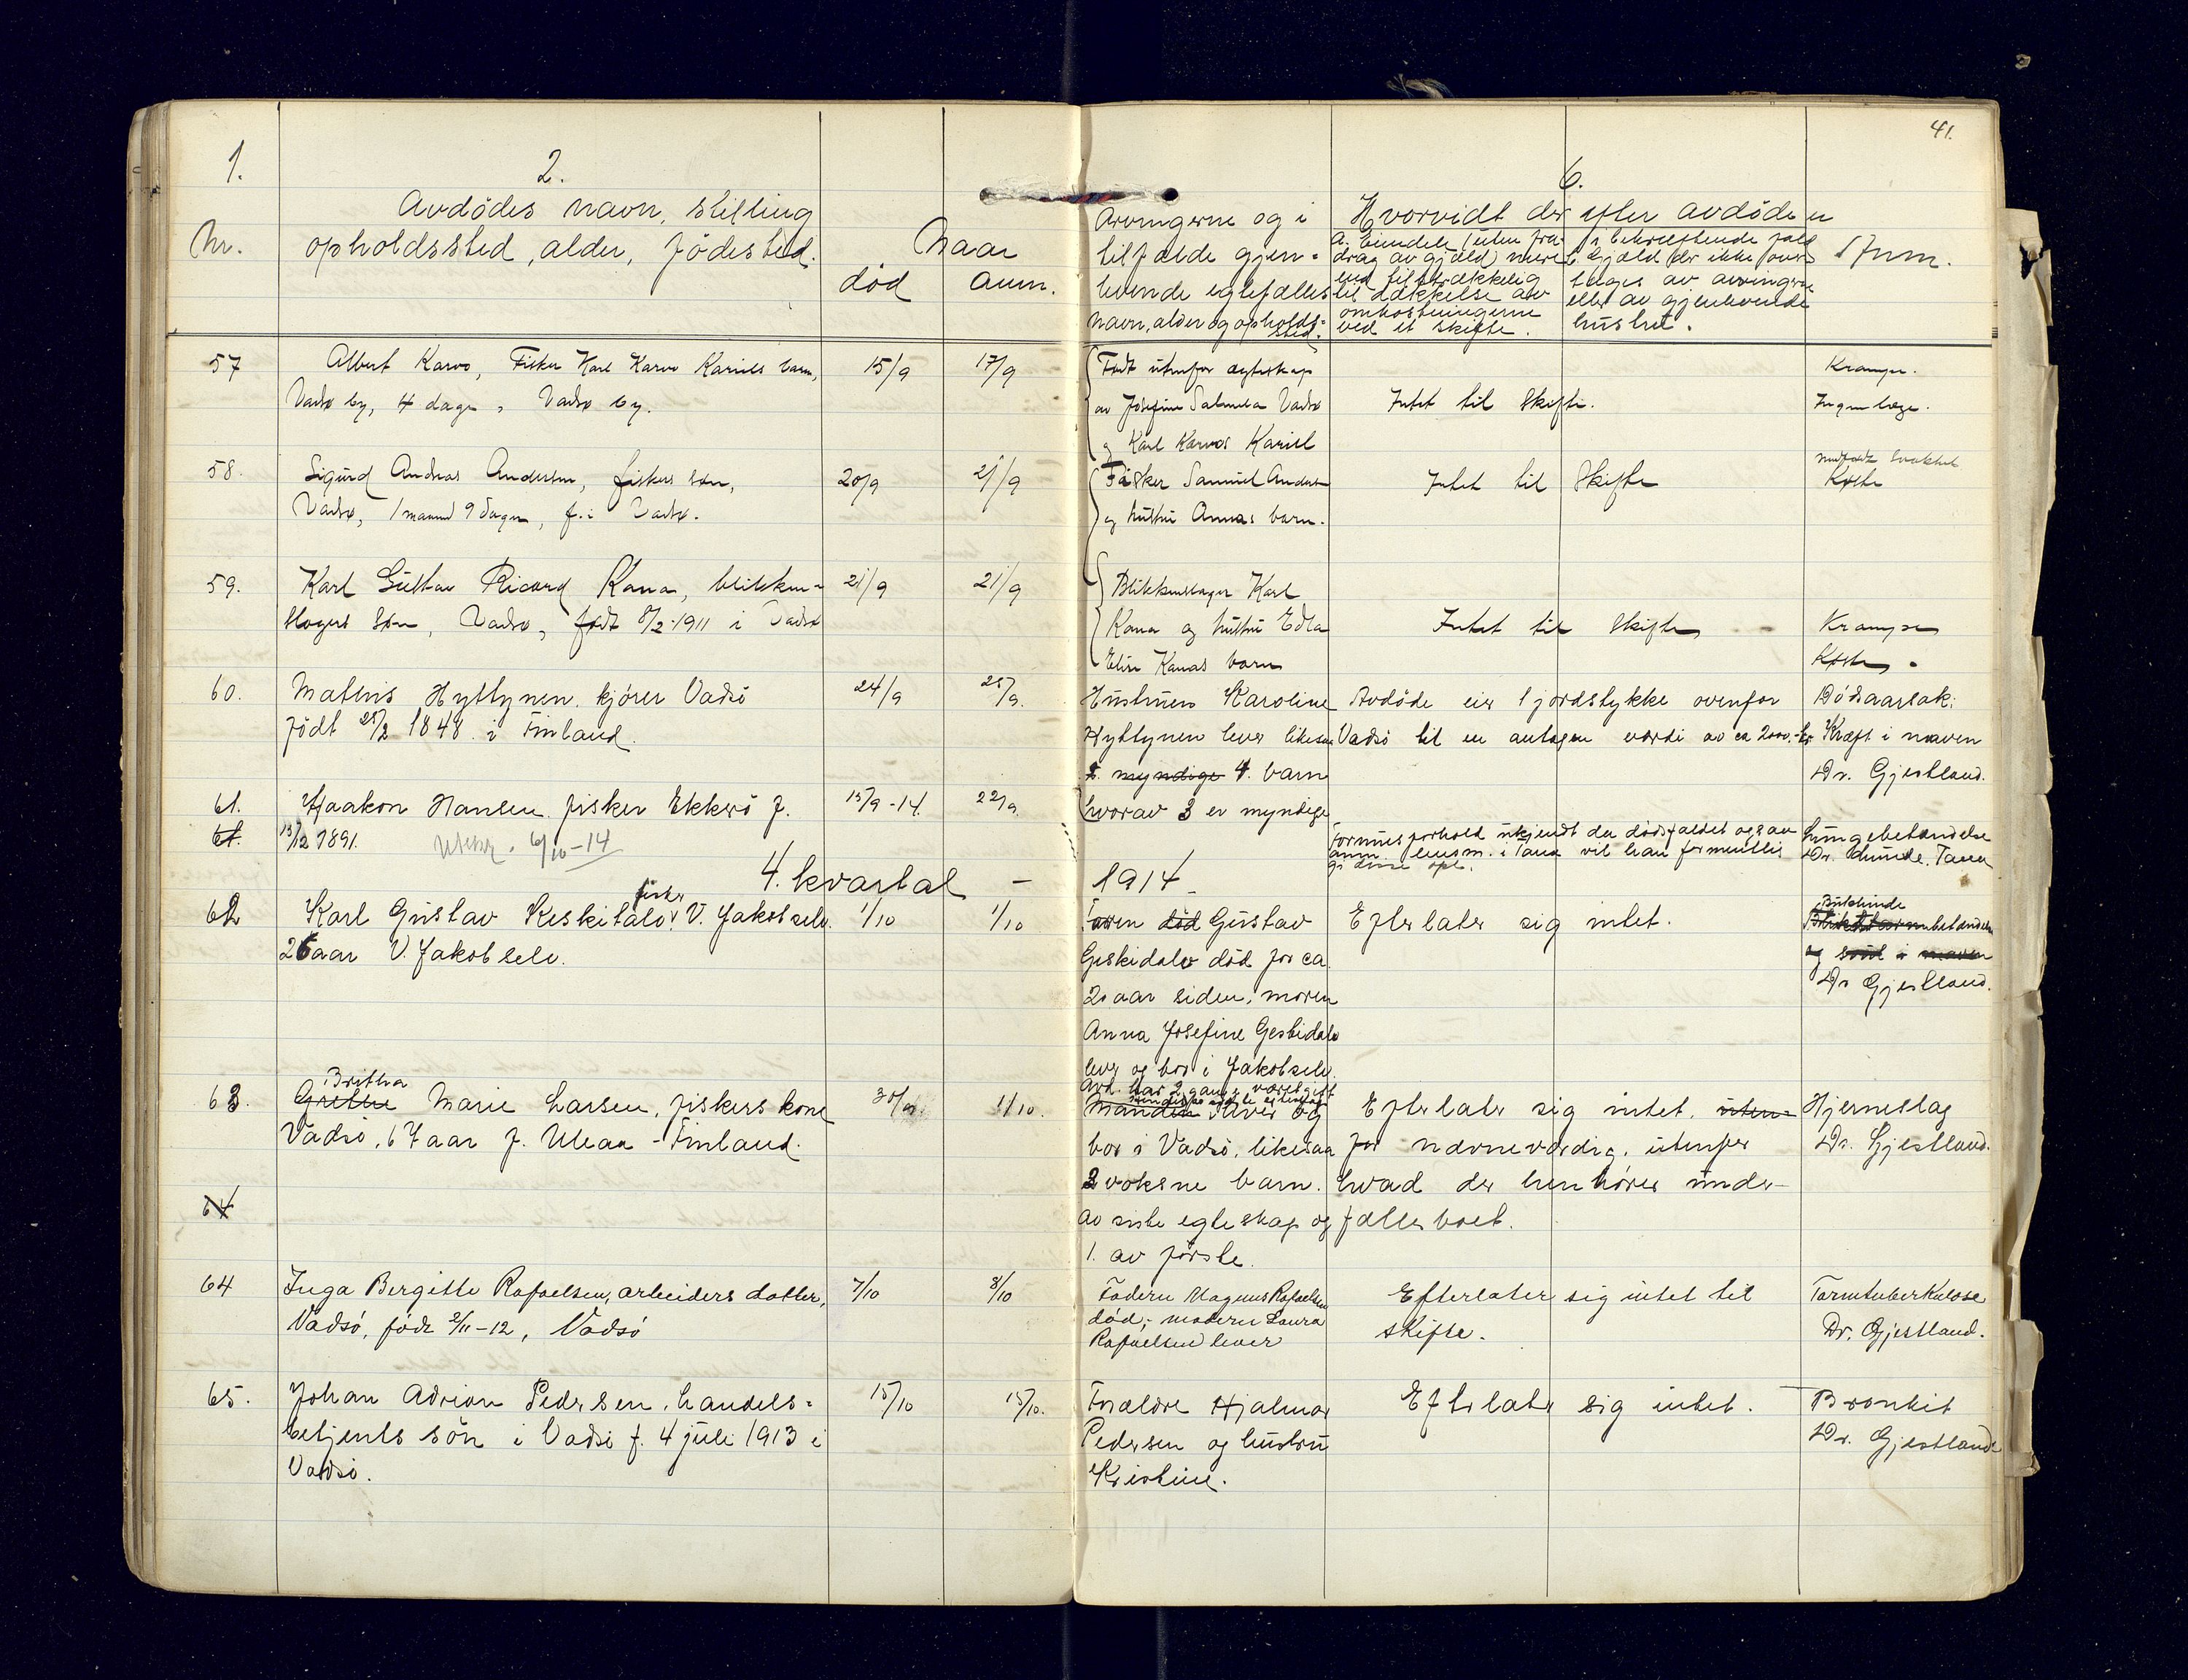 41.
1.
2.
6.
Nr.
Avdødes navn, stilling
opholdssted, alder, födested.
Naar
död anm.
Arvingerne og i
tilfælde gjen-
levende egtefælles
navn, alder og opholds-
sted.
Hvorvidt der efter avdöde er
A. Eiendele (uten fra-
drag av gjæld) mere
end tilstrækkelig
til dækkelse av
omkostningerne
ved et skifte.
i bekræftende fald
b. Gjæld der ikke over
tages av arvingerne
eller av gjenlevende
hustru.
Anm.
57 Albert Karvo, Fisker Karl Karvo Kariels barn, 15/9 17/9
Vadsø by, 4 dage, Vadsø by.
Født utenfor egteskap
av Josefine Salmela Vadsø
og Karl Karvos Kariel
Intet til Skifte.
Krampe.
Ingen læge.
58. Sigurd Andreas Andersen, fiskers søn, 20/9 21/9
Vadsø, 1 maaned 9 dager, f. i Vadsø.
Fisker Samuel Andersen
og hustru Annas barn.
Intet til Skifte
medfødt svakhet
Koren
59. Karl Gustav Ricard Kana, blikken- 21/9 21/9
slagers søn, Vadsø, født 8/2-1911 i Vadsø
Blikkenslager Karl
Kana og hustru Edla
Elise Kanas barn
Intet til skifte
Krampe
60. Mathis Hyttynen kjører Vadsö 24/9 25/9.
födt 25/2 1848 i Finland.
Hustruen Karoline
Hyttynen lever likesaa
myndige 4. barn
hvorav 3 er myndige
Avdöde eier 1 jordstykke ovenfor
Vadsö til en antagen værdi av ca 2000.- kr.
Dödsaarsak:
Kræft i maven
Dr. Gjestland.
61. Haakon Hansen fisker Ekkerö f. 15/9-14. 22/9
61. 13/12 1891. 6/10-14
Formuesforhold ukjendt da dödsfaldet ogsaa
anm. lensm. i Tana vil han formentlig
gi disse opl.
Lungebetændelse
Dr. Lunde. Tana
4. kvartal - 1914
62 Karl Gustav Keskitalo, fisker V. Jakobselv. 1/10 1/10
26 aar V. Jakobselv.
Faren död Gustav
Geskidalo död for ca
20 aar siden, moren
Anna Josefine Geskidalo
lever og bor i Jakobselv.
Efterlater sig intet.
Bukhinde
betændelse
og saar i maven
Dr Gjestland.
63. Britha
Grethe Marie Larsen, fiskers kone 30/9. 1/10.
Vadsö, 67 aar f. Uleaa - Finland.
Avd. har 2 gange været gift
Manden Iver og
bor i Vadsö, likesaa
3 voksne barn.
av siste egteskap og
1. av förste.
Efterlater sig intet, uten-
for nævneværdig, utenfor
hvad der henhörer under
fællesboet.
Hjerneslag
Dr. Gjestland.
64
64 Inga Bergitte Rafaelsen, arbeiders datter, 7/10 8/10
Vadsö, född 2/11-12, Vadsö
Faderen Magnus Rafaelsen
död, moderen Laura
Rafaelsen lever
Efterlater sig intet til
skifte.
Tarmtuberkulose
Dr. Gjestland.
65. Johan Adrian Pedersen, handels- 15/10 15/10.
betjents sön i Vadsö f. 4 juli 1913 i
Vadsö.
Forældre Hjalmar
Pedersen og hustru
Kristine.
Efterlater sig intet.
Bronkit
Dr. Gjestland